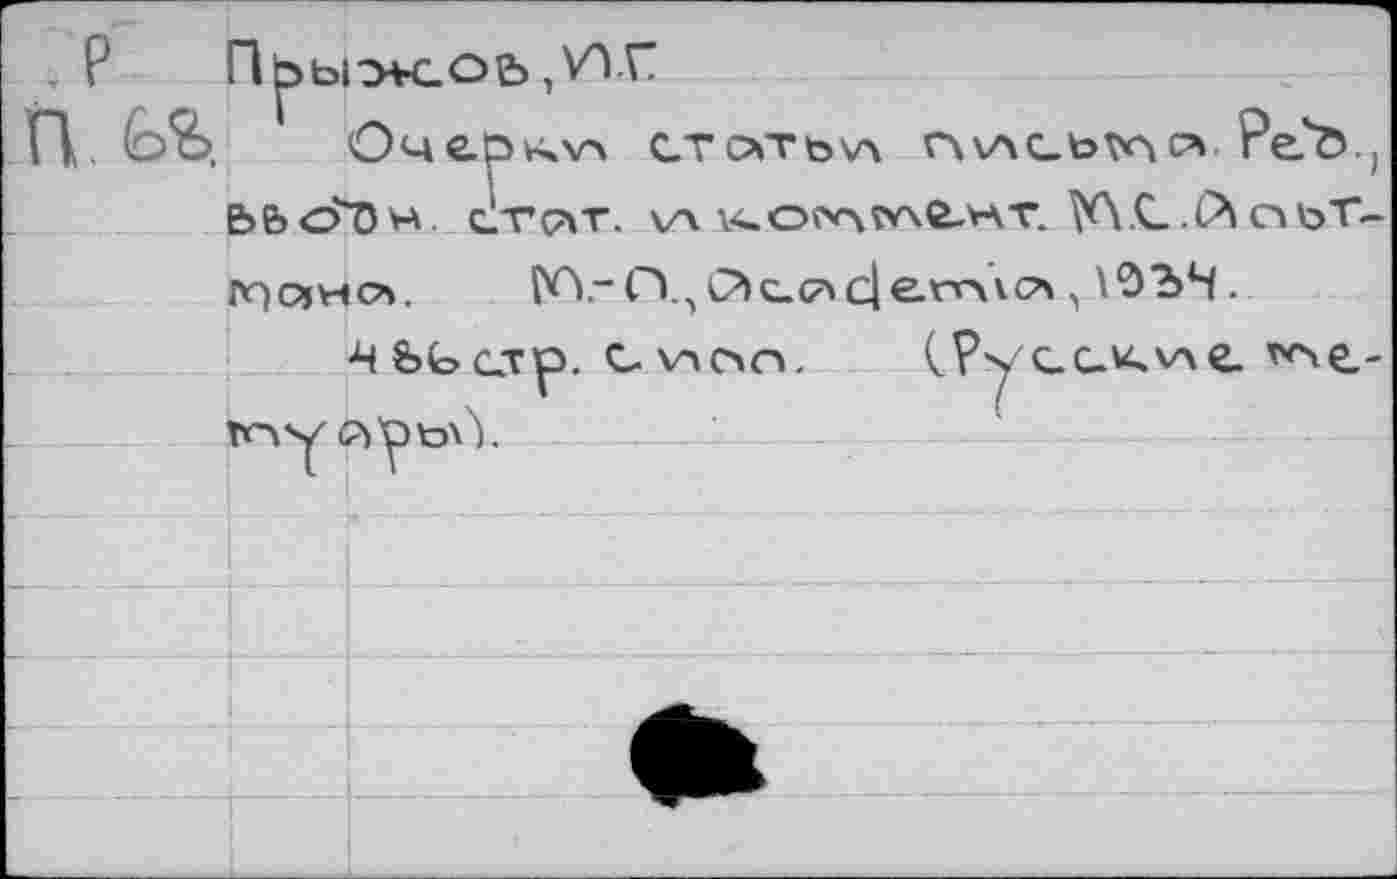 Р Прыжов, И.Г.
П. 68. Очерки статьи письма. Ред.,
вводн. стат. и коммент. М.С. Альт-
мана. М.-Л., Academia, 1934.
483 стр. с илл. (Русские ме-
муары).